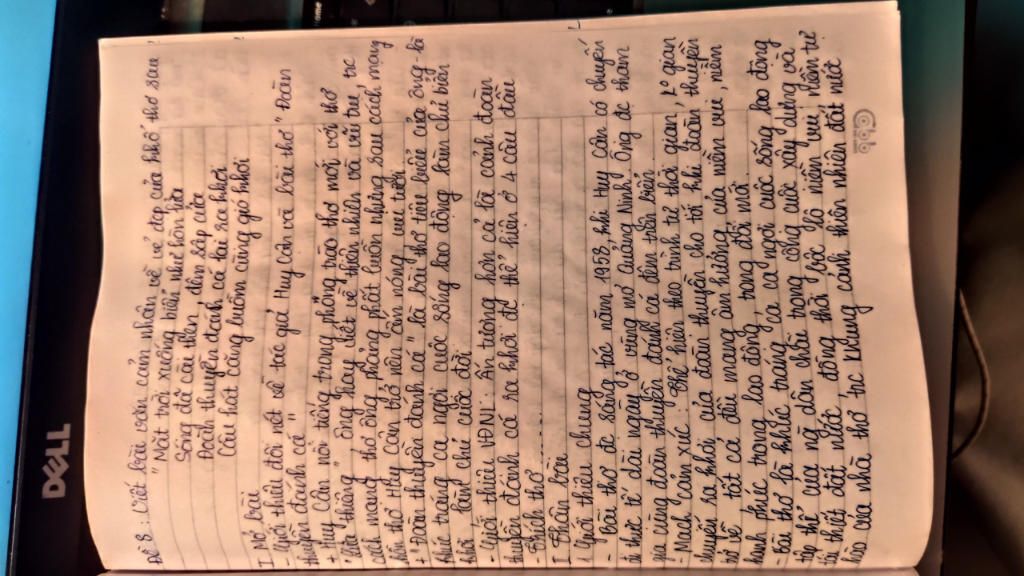 Đề 8: Viết bài văn cảm nhận về vẻ đẹp của khổ thơ sau
"Mặt trời xuống biển như hòn lửa
Sóng đã cài then đêm sập cửa
Đoàn thuyền đánh cá lại ra khơi
Câu hát căng buồm cùng gió khơi
I. Mở bài
- Giới thiệu đôi nét về tác giả Huy Cận và bài thơ "Đoàn
thuyền đánh cá"
+ Huy Cận nổi tiếng trong phong trào thơ mới với thơ
"Lửa thiêng" ông hay viết về thiên nhiên và vũ trụ, tr c
cách mạng thơ ông phảng phất buồn nhưng sau cách mạng
hồn thơ Huy Cận trở nên ấm nóng vui tươi
+ "Đoàn thuyền đánh cá" là bài thơ tiêu biểu của ông - là
khúc tráng ca ngợi cuộc sống lao động làm chủ biển
khơi làm chủ cuộc đời
- Giới thiệu VĐNL: Ấn tượng hơn cả là cảnh đoàn
thuyền đánh cá ra khơi đc thể hiện ở 4 câu đầu
- Trích thơ ........
II. Thân bài
1. Giới thiệu chung
- Bài thơ đc sáng tác năm 1958 khi Huy Cận có chuyến
đi thực tế dài ngày ở vùng mỏ Quảng Ninh. Ông đc tham
gia cùng đoàn thuyền đánh cá đêm trên biển.
- Mạch cảm xúc: Thể hiện theo trình tự thời gian, ko gian
chuyến ra khơi của đoàn thuyền cho tới khi đoàn thuyền
trở về tất cả đều mang âm hưởng của niềm vui, niềm
hạnh phúc trong lao động, trong đời mới.
- Bài thơ là khúc tráng ca ca ngợi cuộc sống lao động
tập thể của ng dân chài trong công cuộc xây dựng và
tái thiết đất nước đồng thời bộc lộ niềm vui, niềm tự
hào của nhà thơ trc khung cảnh thiên nhiên đất nước
DELL